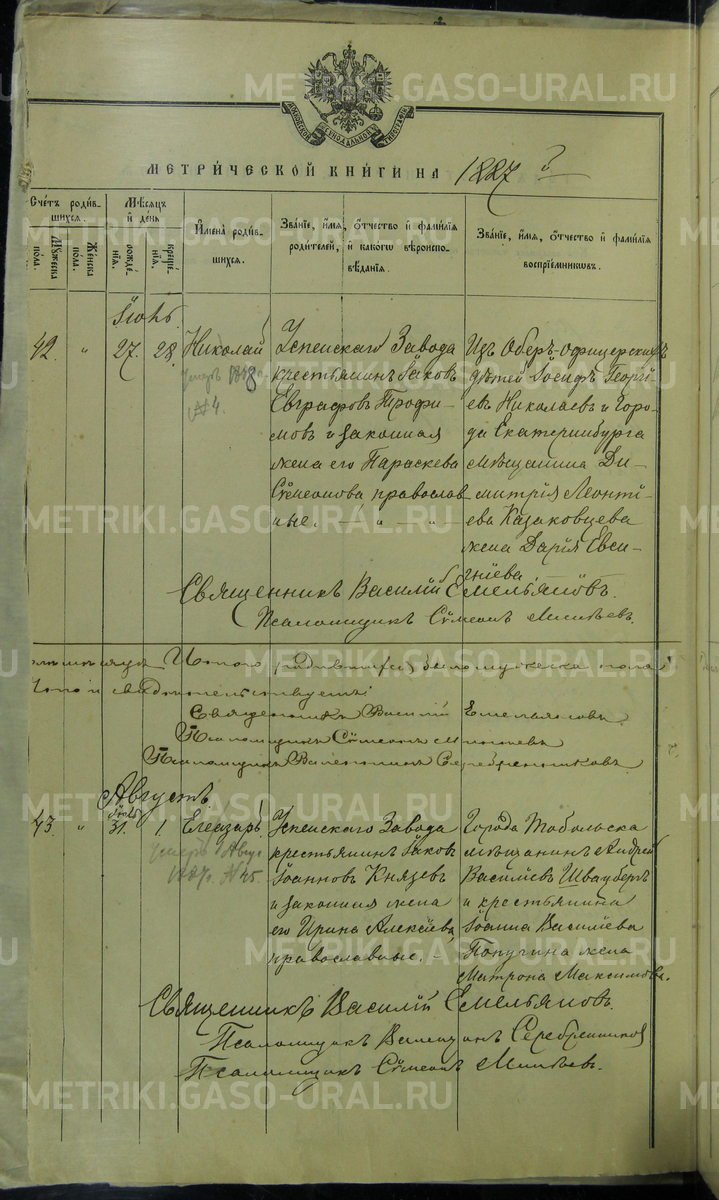 METRIKI.GASO-URAL.RU
МОСКОВСКОЙ СѴНОДАЛЬНОЙ ТИПОГРАФІИ
МЕТРИЧЕСКОЙ КНИГИ НА 1887
Счетъ родившихся.
Мужеска пола.
Женска пола.
Мѣсяцъ и день
рожденія.
крещенія.
Имена родившихся.
Званіе, имя, отчество и фамилія родителей, и какого вѣроисповѣданія.
Званіе, имя, отчество и фамилія воспріемниковъ.
Іюль.
42. „ 27. 28. Николай
№ 4.
Успенскаго Завода
крестьянинъ Іаковъ
Евграфовъ Трофи-
мовъ и законная
жена его Параскева
Сѵмеонова православ-
ные.
Изъ Оберъ-офицерскихъ
дѣтей Іосифъ Георгі-
евъ Николаевъ и Горо-
да Екатеринбурга
мѣщанина Ди-
митрія Леонті-
ева Казаковцева
жена Дарія Евси-
гніева.
Священникъ Василій Емельяновъ.
Псаломщикъ Сѵмеонъ
Итого родившихся было мужеска пола
свидѣтельствуетъ:
Священникъ Василій Емельяновъ.
Псаломщикъ Сѵмеонъ
Псаломщикъ Валентинъ Серебренниковъ.
Августъ.
Іюль
43. „ 31. 1. Елеазаръ
умеръ Авгу.
№ 45.
Успенскаго Завода
крестьянинъ Іаковъ
Іоанновъ Князевъ
и законная жена
его Ирина Алексѣева,
православные.
Города Тобольска
мѣщанинъ Андрей
Васильевъ Шваубергъ
и крестьянина
Іоанна Василіева
Попугина жена
Матрона Максимова.
Священникъ Василій Емельяновъ.
Псаломщикъ Валентинъ Серебренниковъ
Псаломщикъ Сѵмеонъ